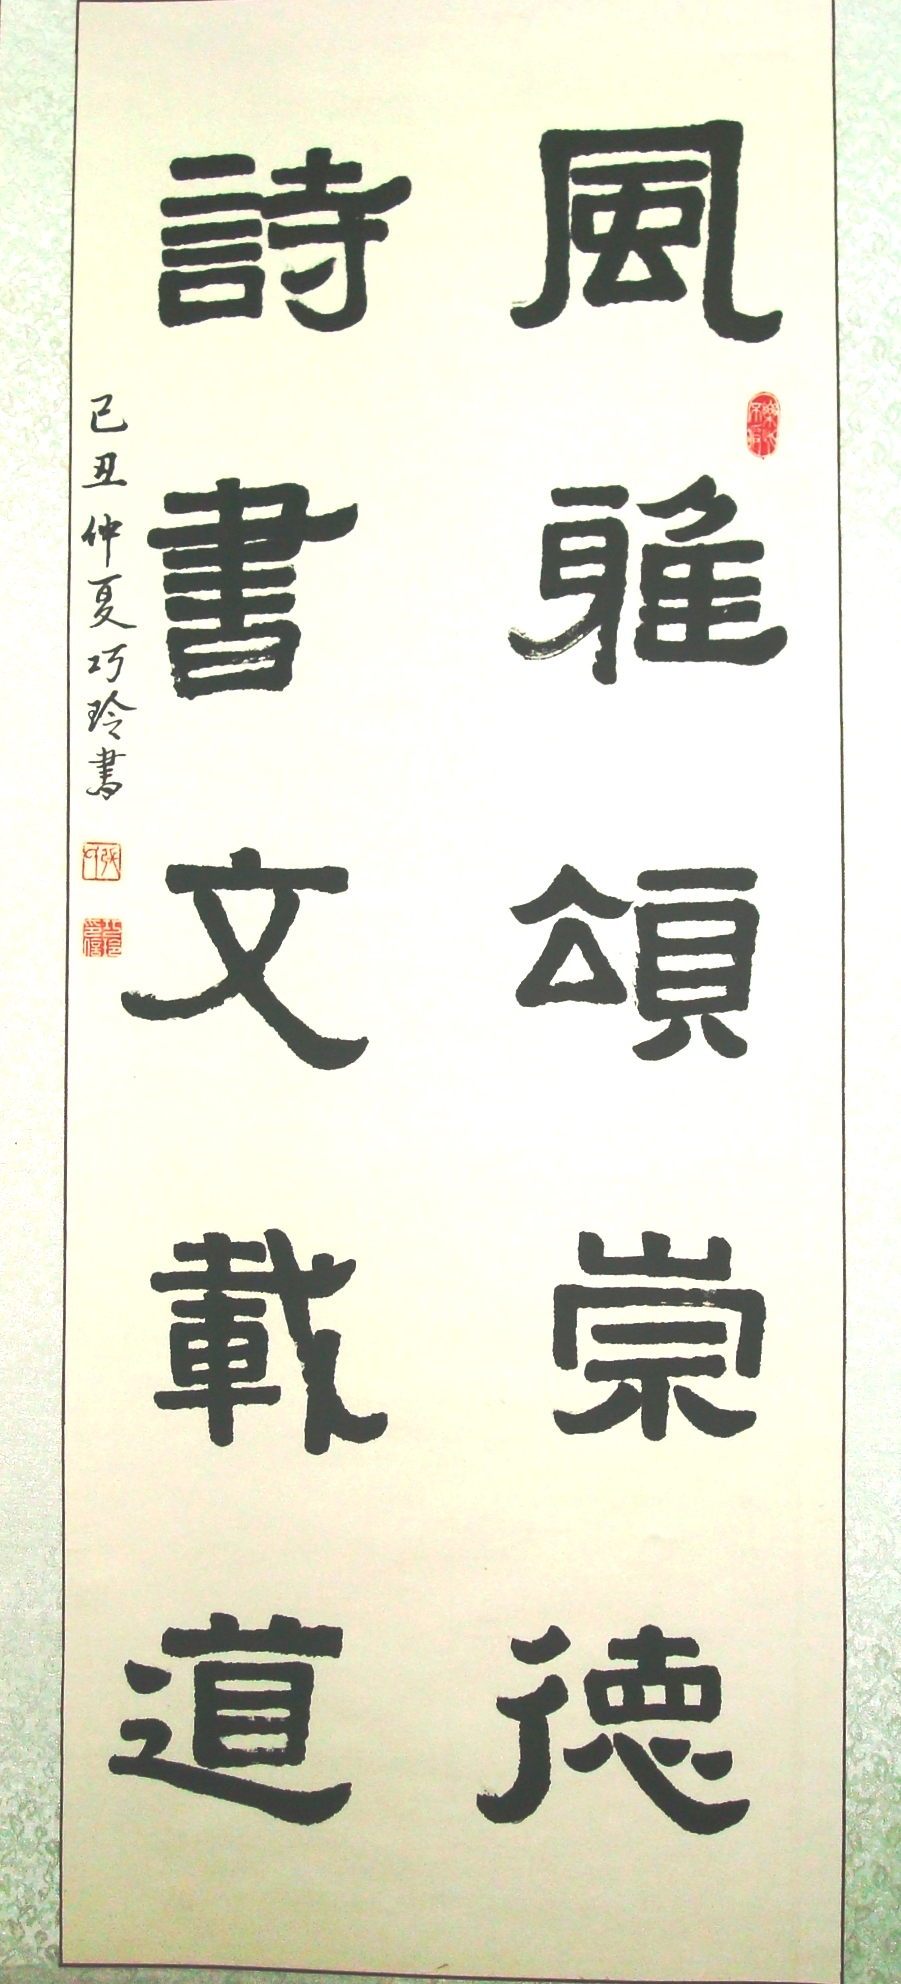 風雅頌崇德
詩書文載道
己丑仲夏巧玲書